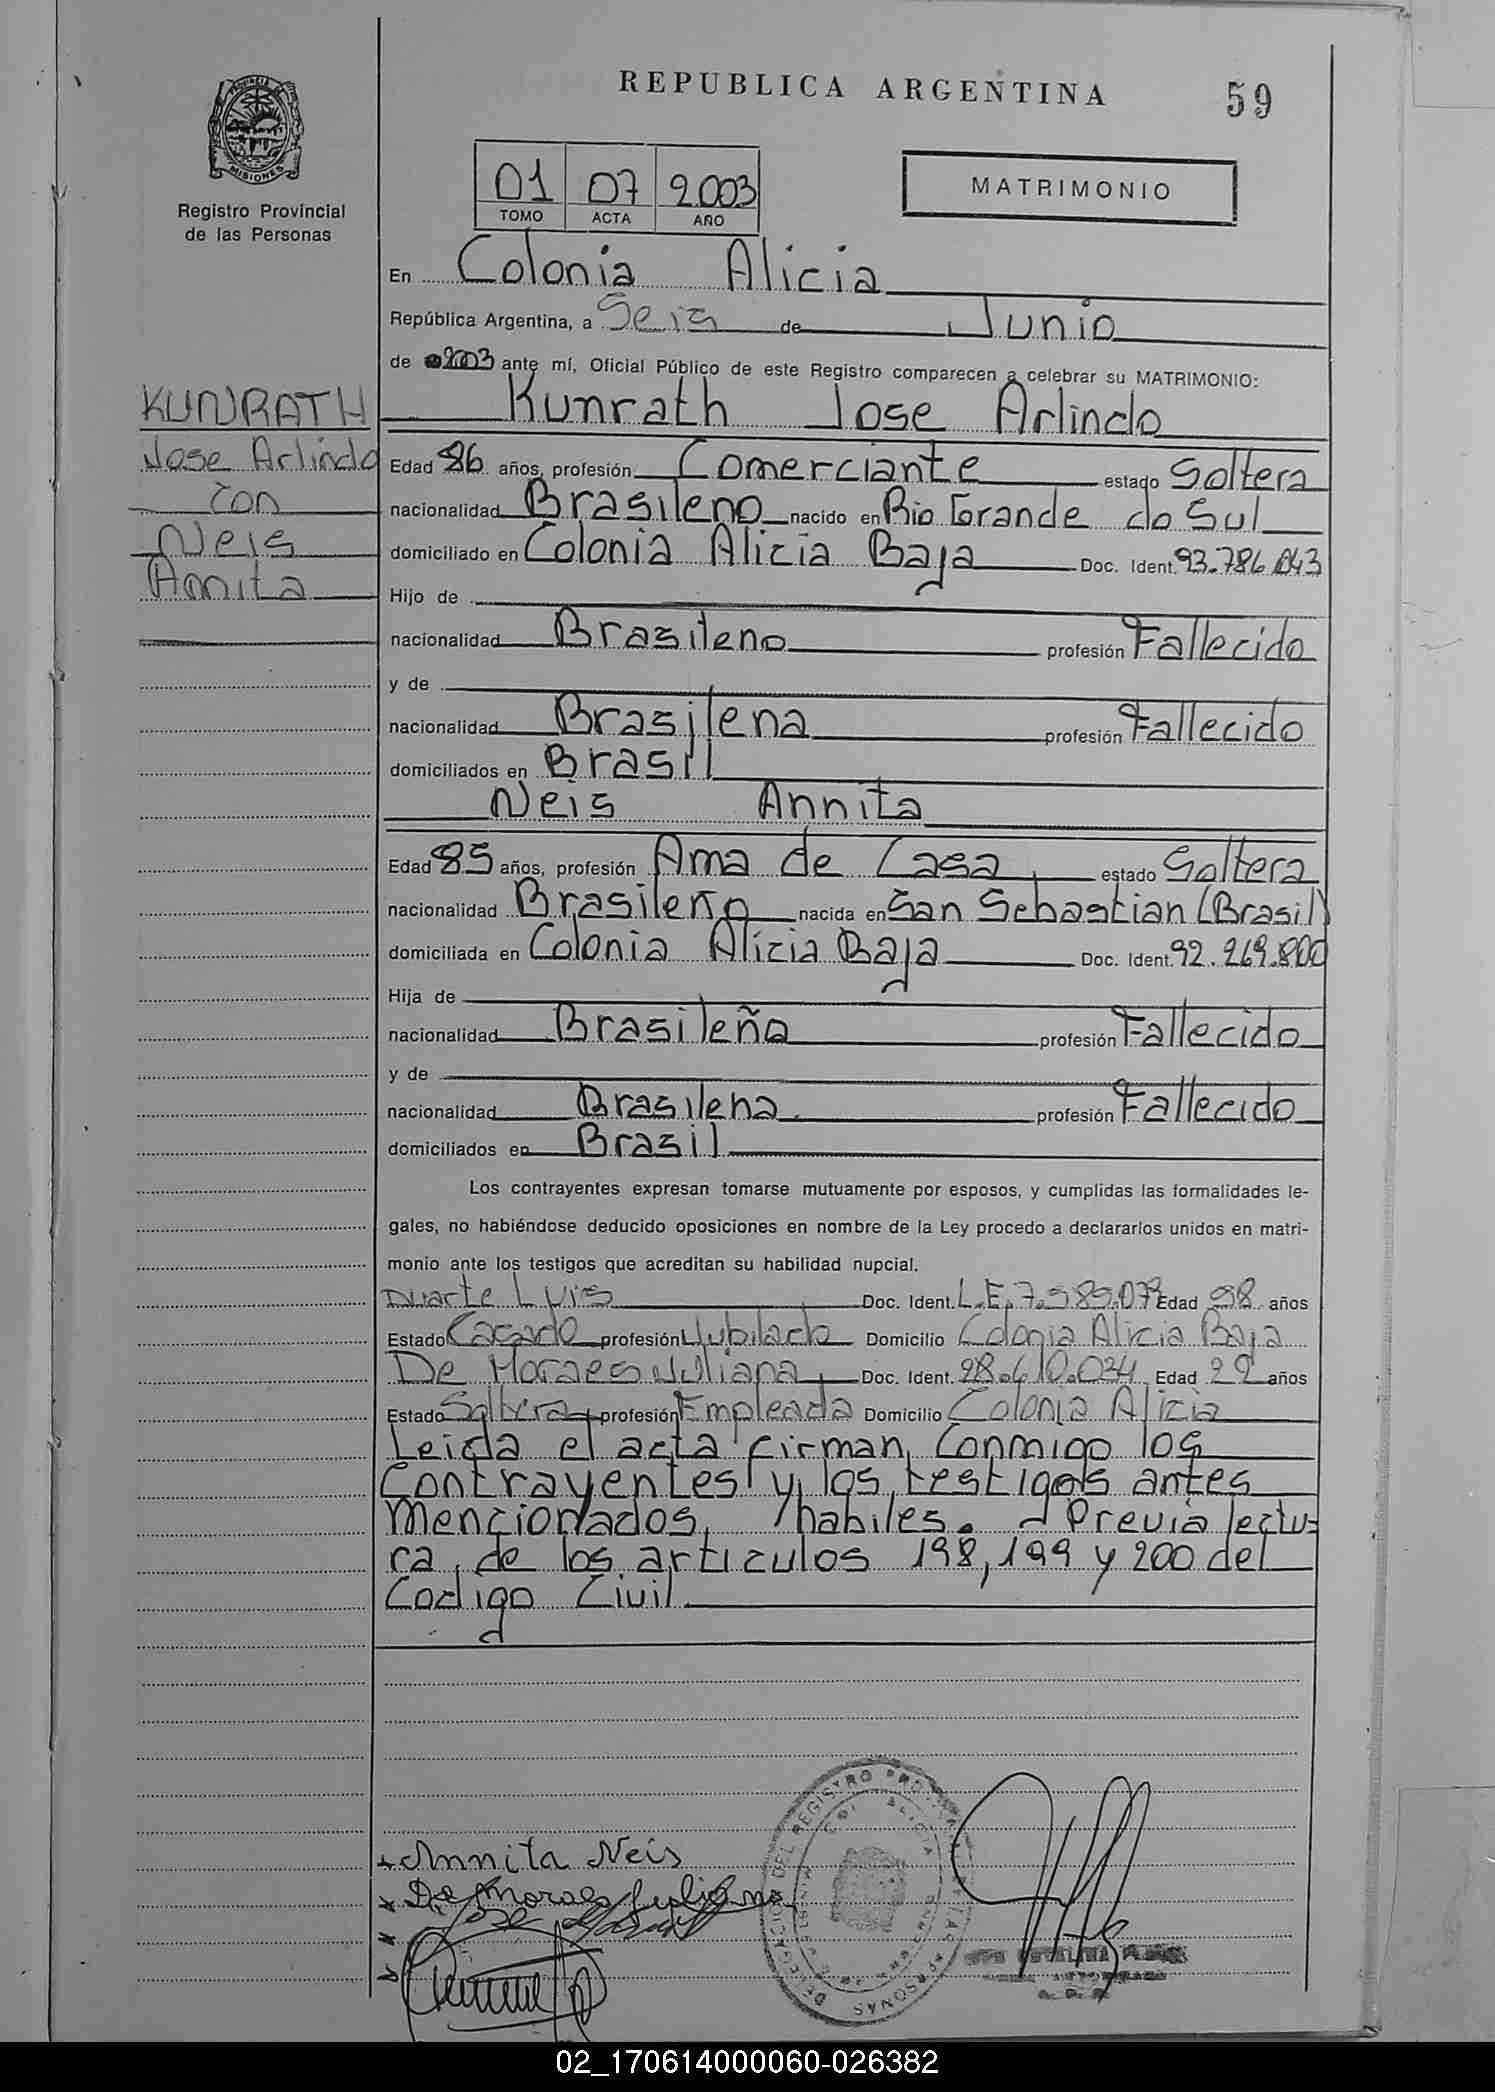 REPUBLICA ARGENTINA
59
PROVINCIA DE MISIONES
Registro Provincial
de las Personas
01 07 2.003
TOMO ACTA AÑO
MATRIMONIO
En Colonia Alicia
República Argentina, a Seis de Junio
de 2003 ante mí, Oficial Público de este Registro comparecen a celebrar su MATRIMONIO:
KUNRATH
Jose Arlindo
con
Neis
Annita
Kunrath Jose Arlindo
Edad 86 años, profesión Comerciante estado Soltera
nacionalidad Brasileno nacido en Rio Grande do Sul
domiciliado en Colonia Alicia Baja Doc. Ident. 93.786.043
Hijo de
nacionalidad Brasileno profesión Fallecido
y de
nacionalidad Brasilena profesión Fallecido
domiciliados en Brasil
Neis Annita
Edad 85 años, profesión Ama de Casa estado Soltera
nacionalidad Brasileña nacida en San Sebastian (Brasil)
domiciliada en Colonia Alicia Baja Doc. Ident. 92.269.800
Hija de
nacionalidad Brasileño profesión Fallecido
y de
nacionalidad Brasilena profesión Fallecido
domiciliados en Brasil
Los contrayentes expresan tomarse mutuamente por esposos, y cumplidas las formalidades le-
gales, no habiéndose deducido oposiciones en nombre de la Ley procedo a declararlos unidos en matri-
monio ante los testigos que acreditan su habilidad nupcial.
Duarte Luis Doc. Ident. L.E. Edad años
Estado Casado profesión Jubilado Domicilio Colonia Alicia Baja
De Moraes Juliana Doc. Ident. 28.610.024 Edad 22 años
Estado Soltera profesión Empleada Domicilio Colonia Alicia
Leida el acta firman conmigo los
Contrayentes y los testigos antes
mencionados, habiles. Previa lectu-
ra de los articulos 198, 199 y 200 del
Codigo Civil
Annita Neis
De Moraes Juliana
Jose
DELEGACION DEL REGISTRO PROVINCIAL DE LAS PERSONAS
COL. ALICIA
MISIONES
02_170614000060-026382